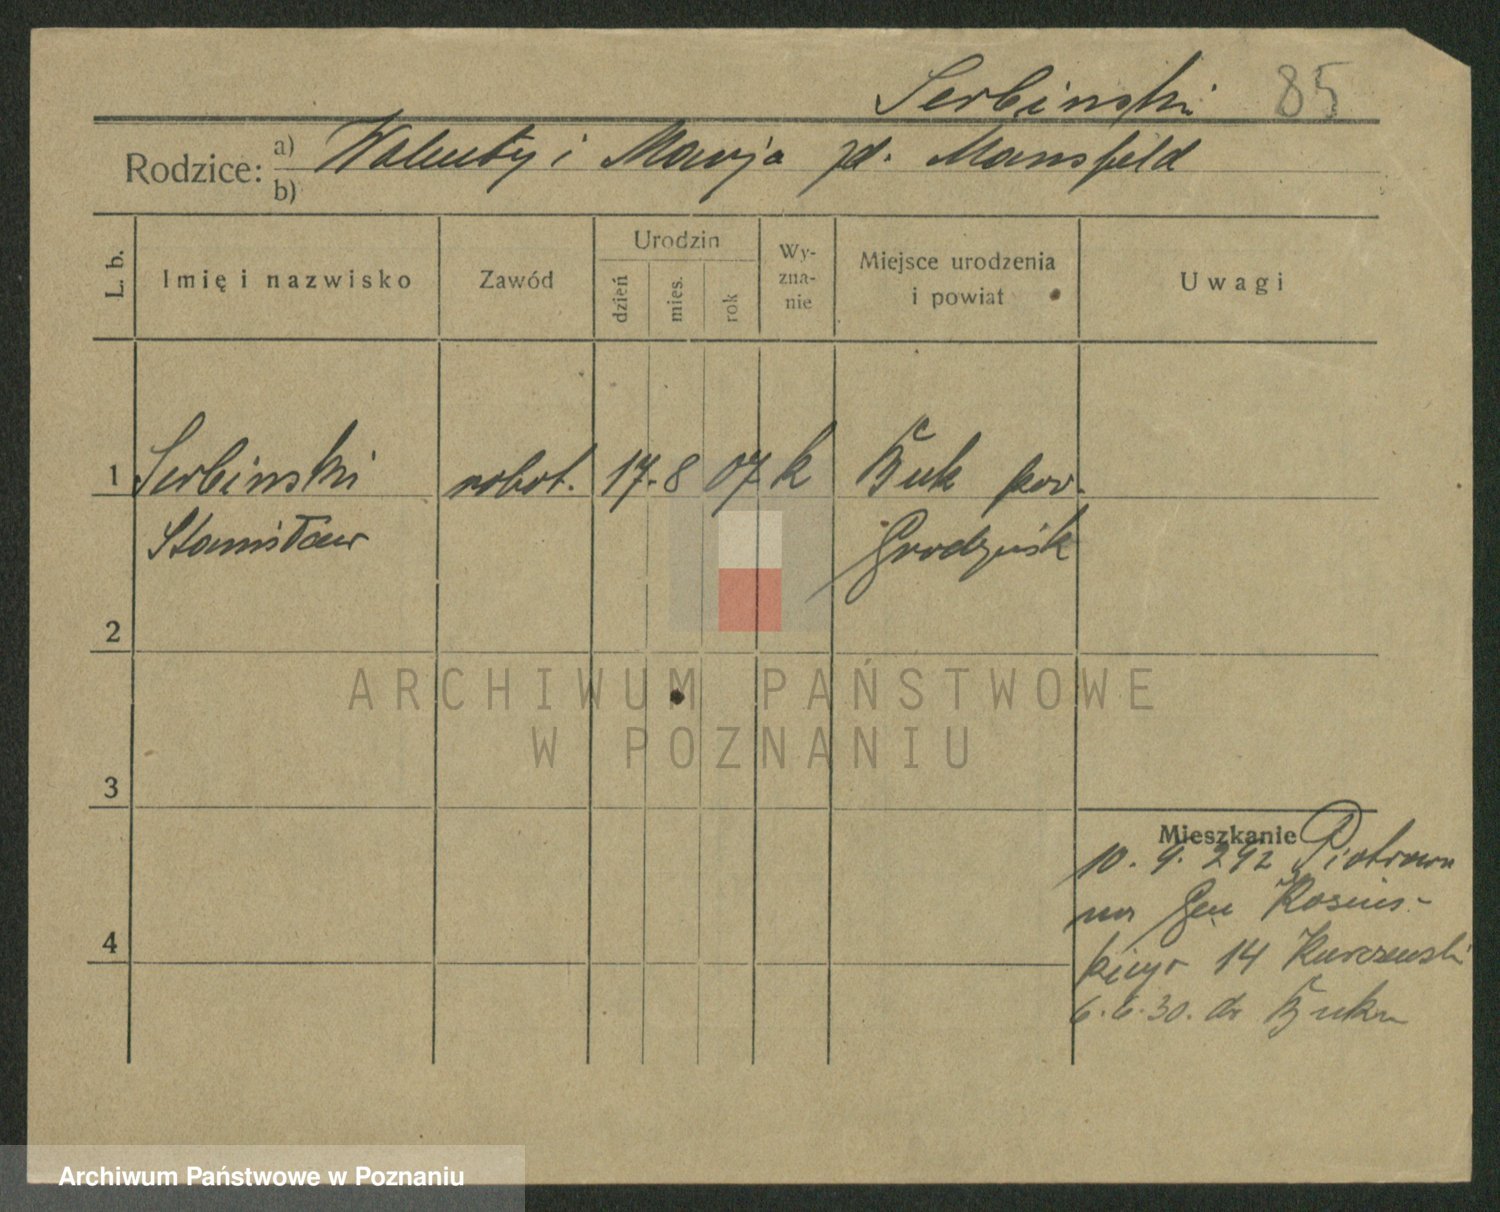 Serbinski 85
Rodzice: a) Walenty i Marja zd. Mansfeld
b)
L. b. Imię i nazwisko Zawód Urodzin dzień mies. rok Wy-zna-nie Miejsce urodzenia i powiat Uwagi
1 Serbinski robot. 17. 8 07 k Buk pow.
Stanisław Grodzisk
2
ARCHIWUM PAŃSTWOWE
W POZNANIU
3
Mieszkanie
10. 9. 292 Piotrowa
na Gen Kosins-
kiego 14 Kurczewski
6. 6. 30. do Buku
4
Archiwum Państwowe w Poznaniu